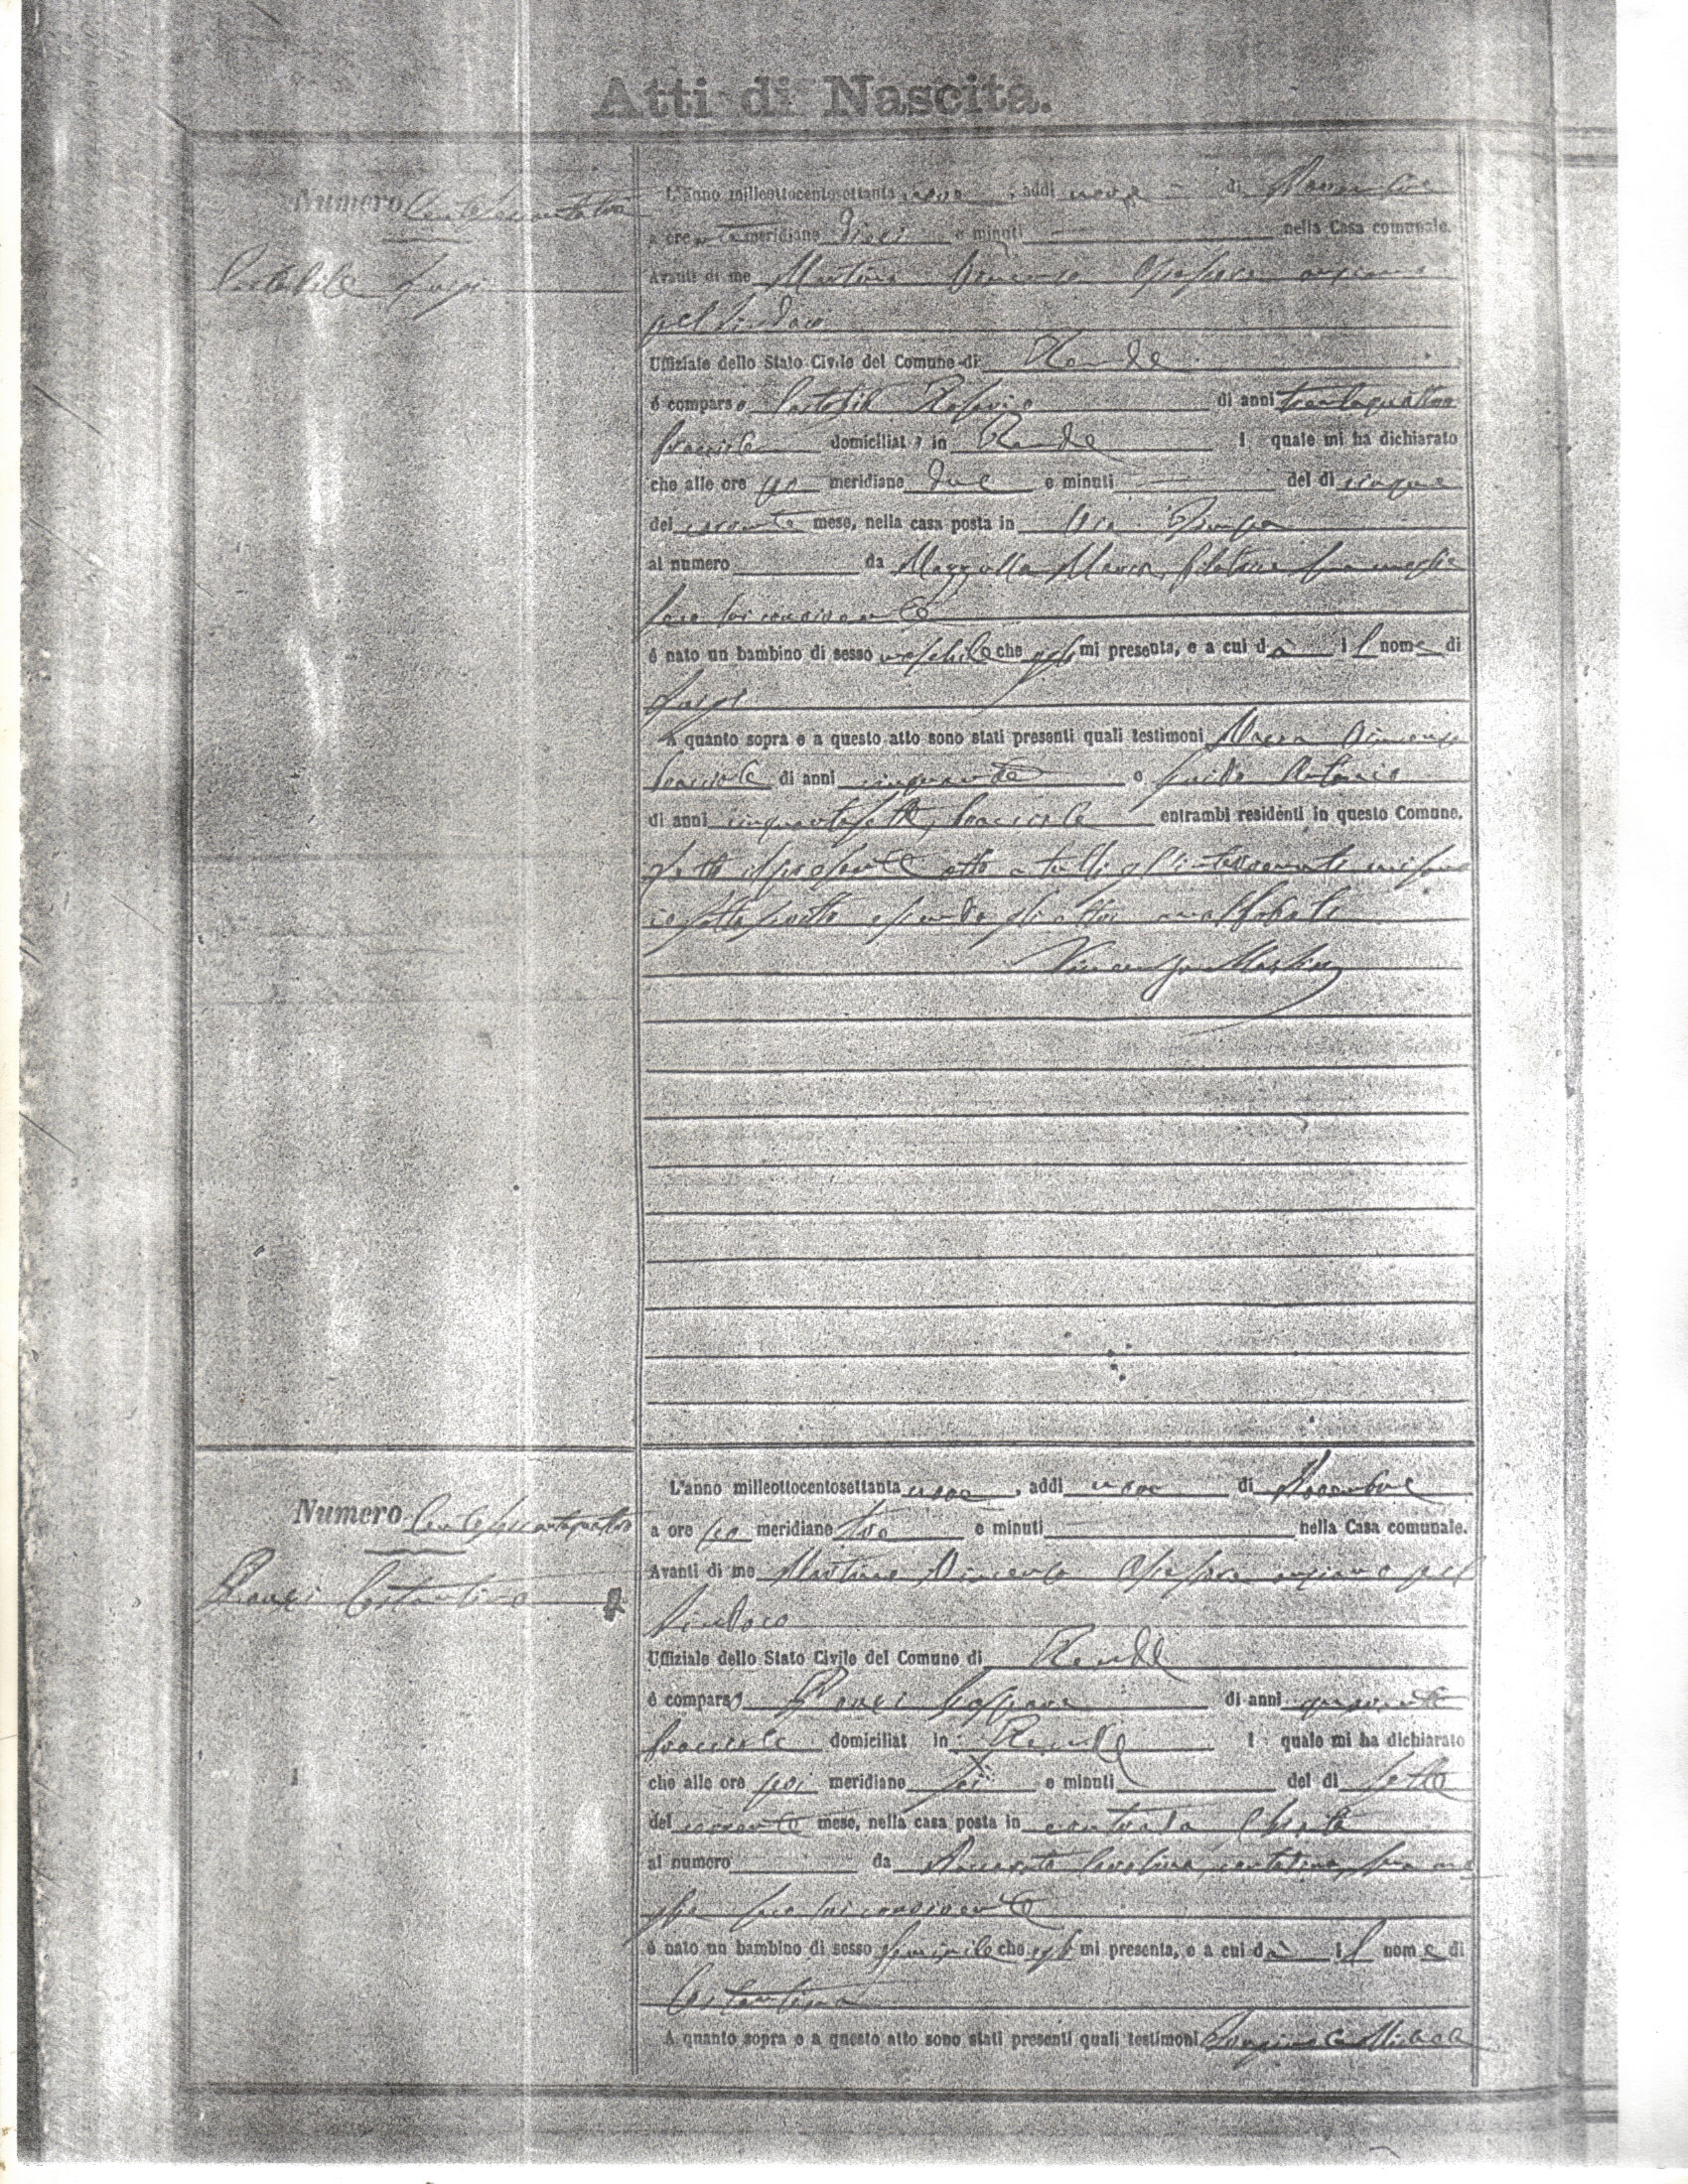 Atti di Nascita.
Numero
Luigi
L'anno milleottocentosettanta nove, addì nove di Novembre
a ore meridiane dieci e minuti nella Casa comunale.
Avanti di me Martino Vincenzo Assessore anziano
pel Sindaco
Uffiziale dello Stato Civile del Comune di Rende
è comparso Rosario di anni trentaquattro
bracciale domiciliato in Rende l quale mi ha dichiarato
che alle ore po meridiane due e minuti del dì cinque
del corrente mese, nella casa posta in
al numero da Mazzulla Maria filatrice sua moglie
seco lui convivente
è nato un bambino di sesso maschile che egli mi presenta, e a cui dà il nome di
Luigi
A quanto sopra e a questo atto sono stati presenti quali testimoni Vincenzo
bracciale di anni cinquanta e Antonio
di anni cinquantasette, bracciale entrambi residenti in questo Comune.
Letto il presente atto a tutti gl'intervenuti
sottoscritto essendo gli altri analfabeti
Vincenzo Martino
Numero
Costantina
L'anno milleottocentosettanta nove, addì nove di Novembre
a ore po meridiane tre e minuti nella Casa comunale.
Avanti di me Martino Vincenzo Assessore anziano pel
Sindaco
Uffiziale dello Stato Civile del Comune di Rende
è comparso Gaspare di anni quaranta
bracciale domiciliat in Rende l quale mi ha dichiarato
che alle ore meridiane sei e minuti del dì sette
del corrente mese, nella casa posta in contrada
al numero da contadina, sua mo
glie seco lui convivente
è nato un bambino di sesso feminile che egli mi presenta, e a cui dà il nome di
Costantina
A quanto sopra e a questo atto sono stati presenti quali testimoni Michele